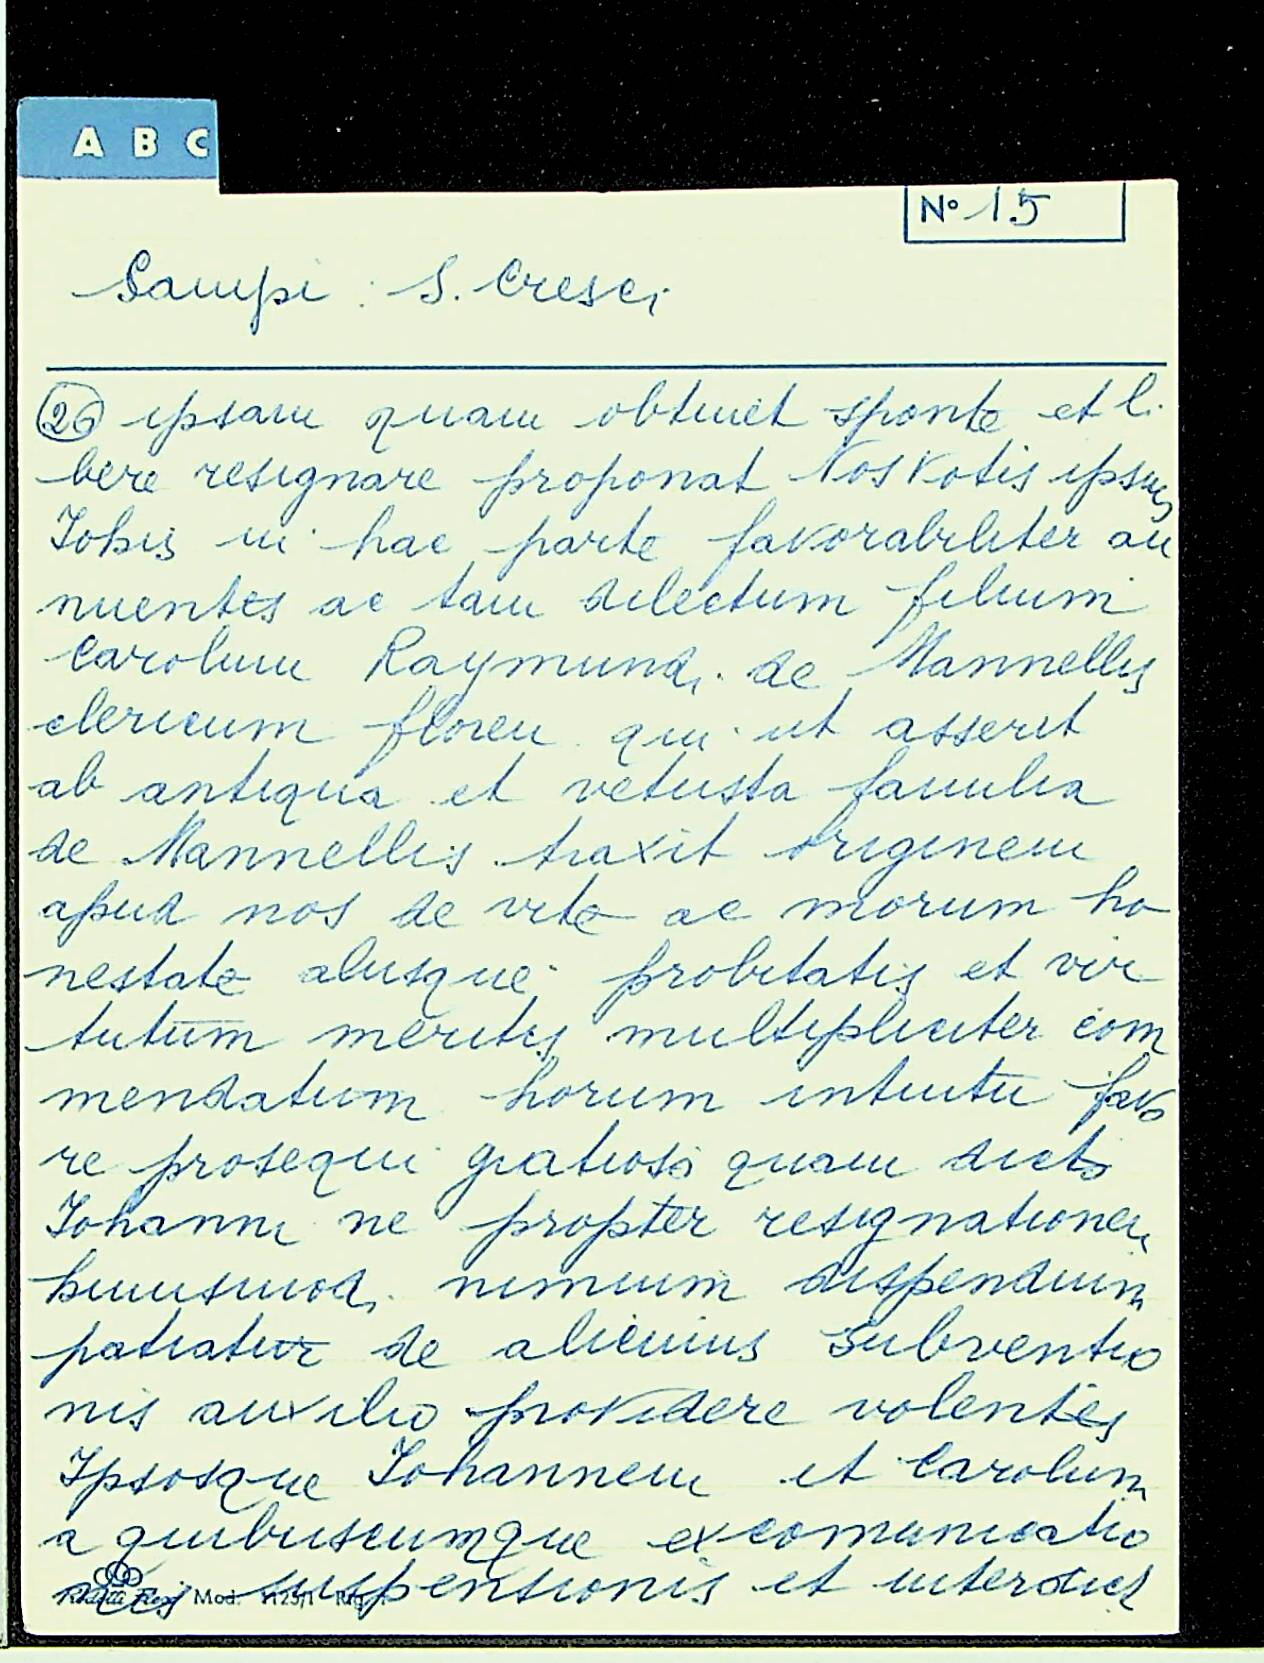 A B C
Nº 15
Campi : S. Cresci
26 ipsam quam obtinet sponte et li
bere resignare proponat Nos votis ipsius
Johis in hac parte favorabiliter an
nuentes ac tam dilectum filium
Carolum Raymundi de Mannellis
clericum floren qui ut asserit
ab antiqua et vetusta familia
de Mannellis traxit originem
apud nos de vita ac morum ho
nestate aliisque probitatis et vir
tutum meritis multipliciter com
mendatum horum intuitu favo
re prosequi gratioso quam dicto
Johanni ne propter resignationem
huiusmodi nimium dispendium
patiatur de alicuius subventio
nis auxilio providere volentes
Ipsosque Johannem et Carolum
a quibuscumque excomunicatio
suspensionis et interdict
Mod. 1125/1 Rig.